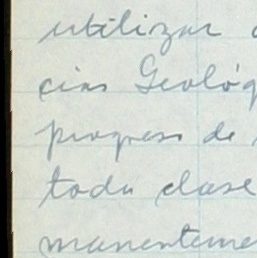 utilizar
cias Geológ
progreso de
toda clase
manenteme